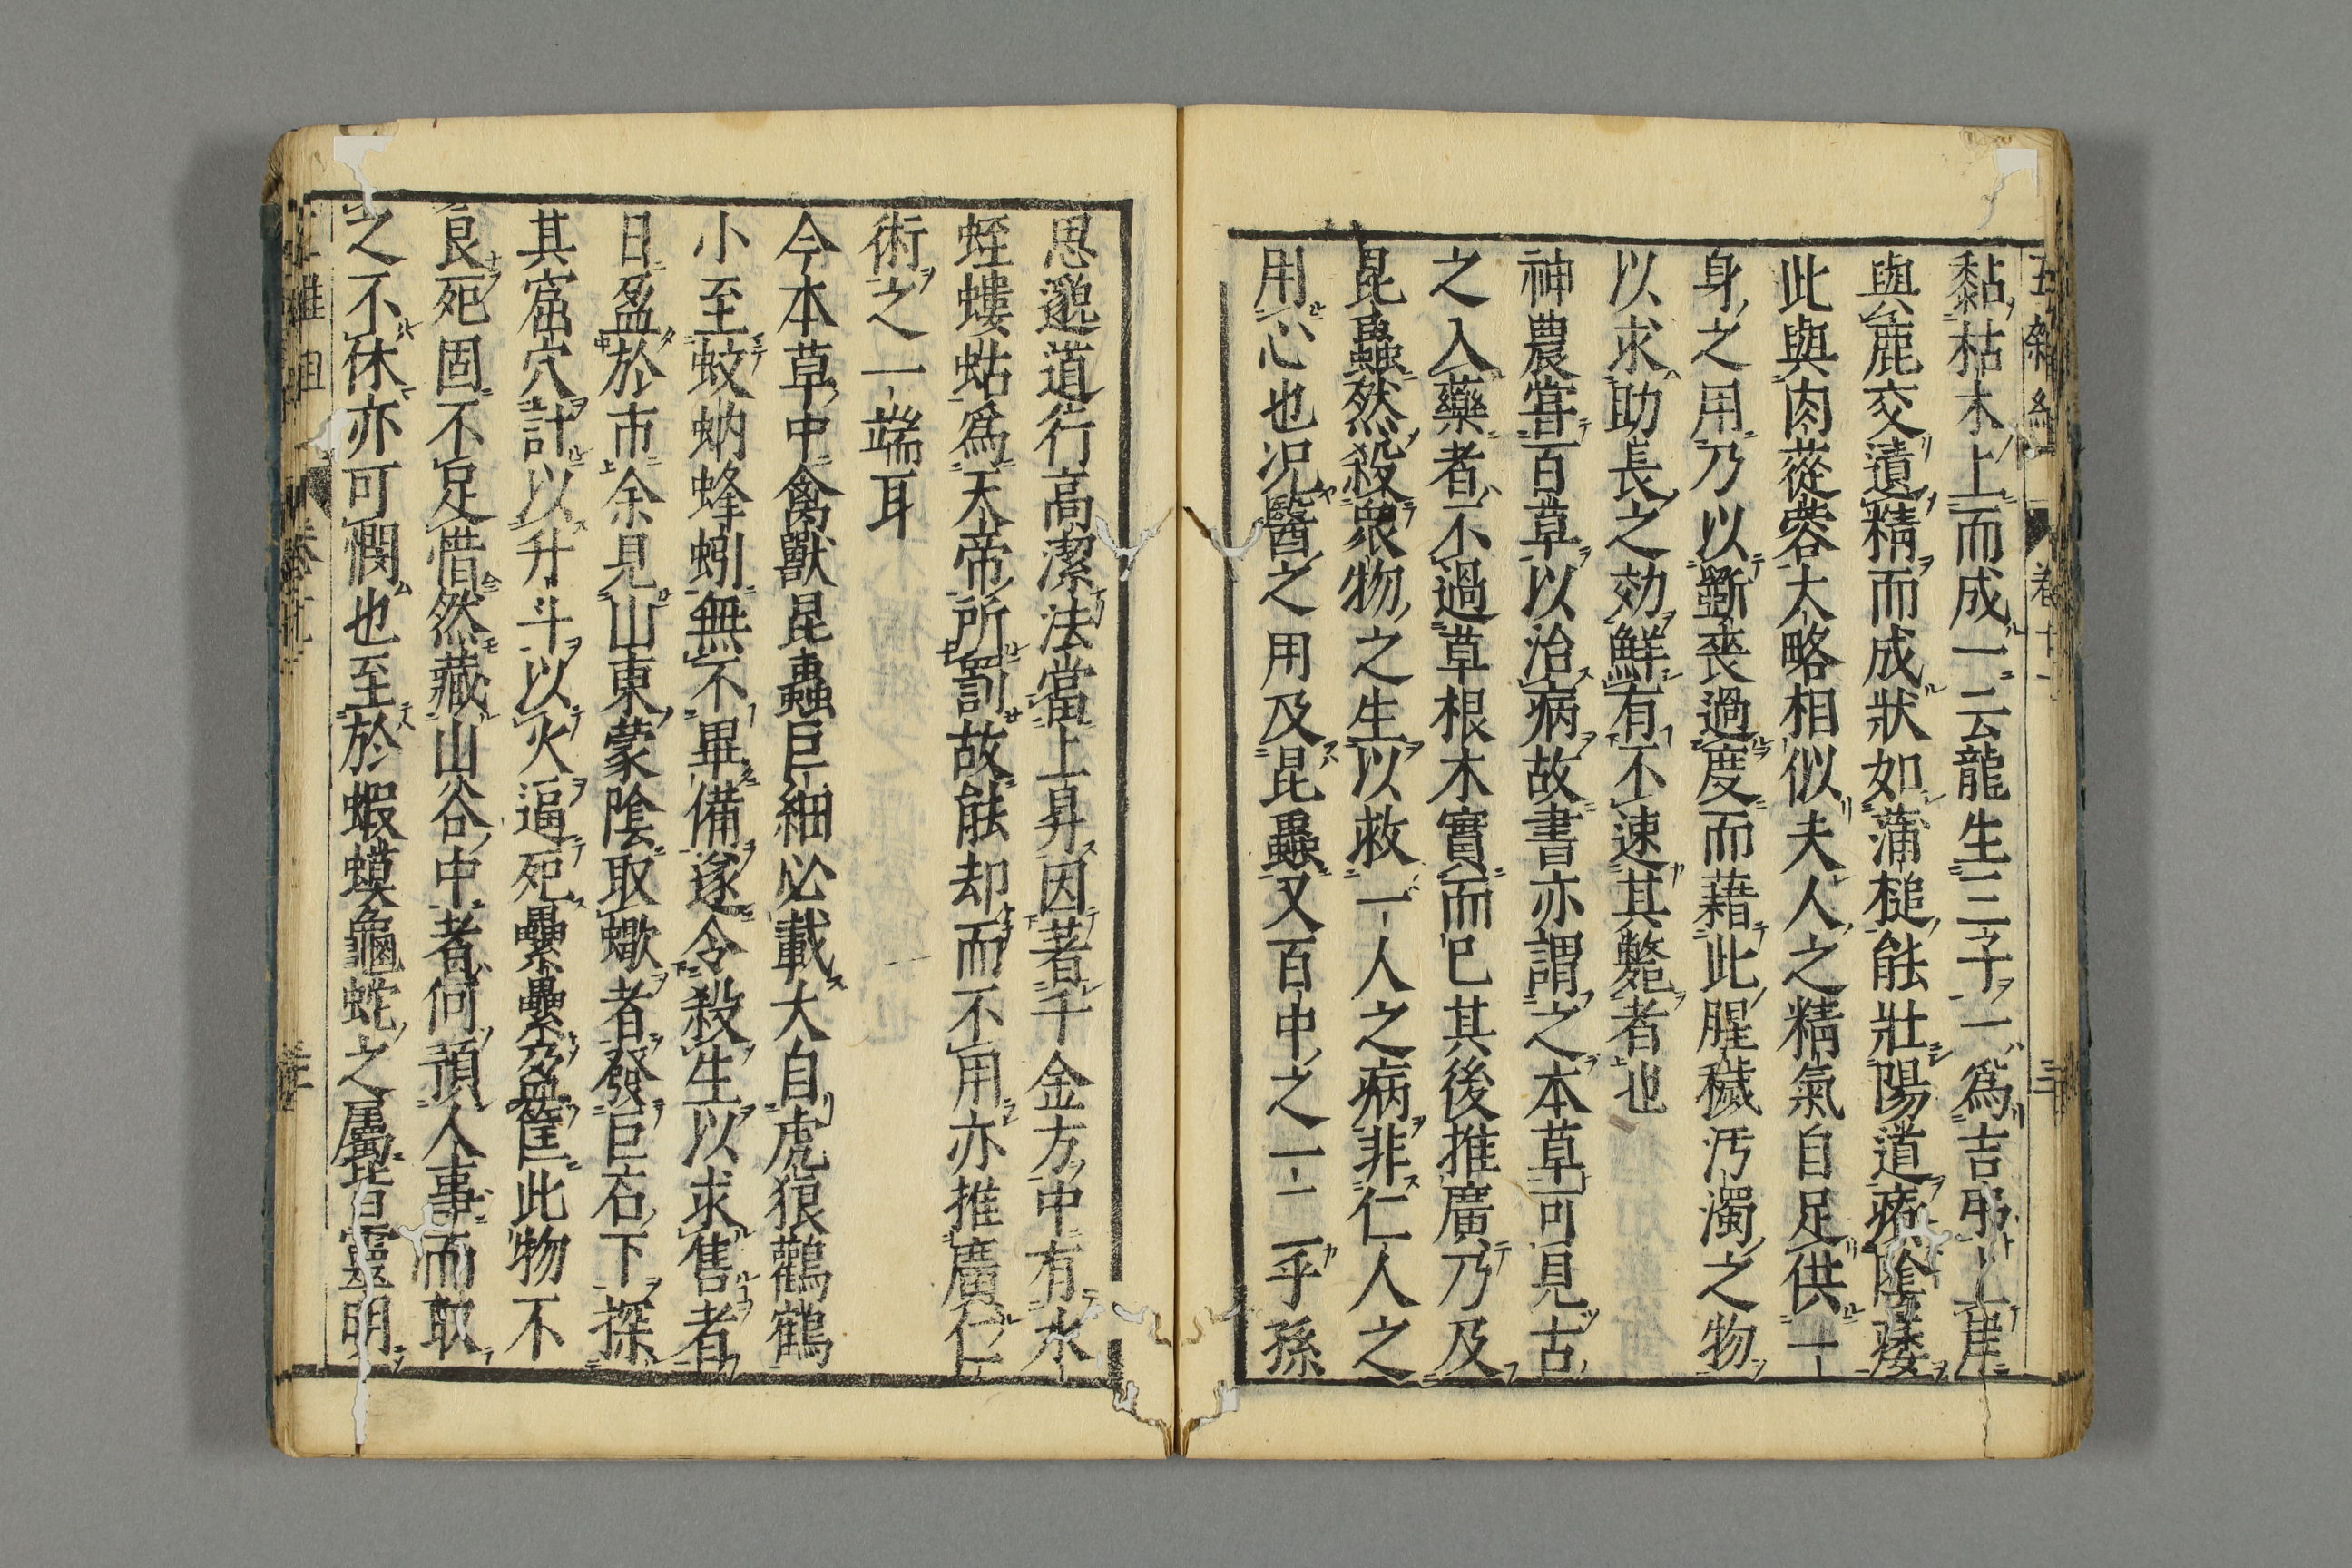 黏枯木上而成一云龍生三子一爲吉弔上岸
與鹿交遺精而成狀如蒲槌能壯陽道療陰痿
此與肉蓯蓉大略相似夫人之精氣自足供一
身之用乃以斲喪過度而藉此腥穢汚濁之物
以求助長之効鮮有不速其斃者也
神農嘗百草以治病故書亦謂之本草可見古
之入藥者不過草根木實而已其後推廣乃及
昆蟲然殺衆物之生以救一人之病非仁人之
用心也况醫之用及昆蟲又百中之一二乎孫
思邈道行高潔法當上昇因著千金方中有水
蛭螻蛄爲天帝所罰故能却而不用亦推廣仁
術之一端耳
今本草中禽獸昆蟲巨細必載大自虎狼鸛鶴
小至蚊蚋蜂蚓無不畢備遂令殺生以求售者
日盈於市余見山東蒙陰取蠍者發巨石下探
其窟穴計以升斗以火逼死纍纍盈筐此物不
良死固不足惜然藏山谷中者何預人事而取
之不休亦可憫也至於蝦蟆龜蛇之屬皆靈明